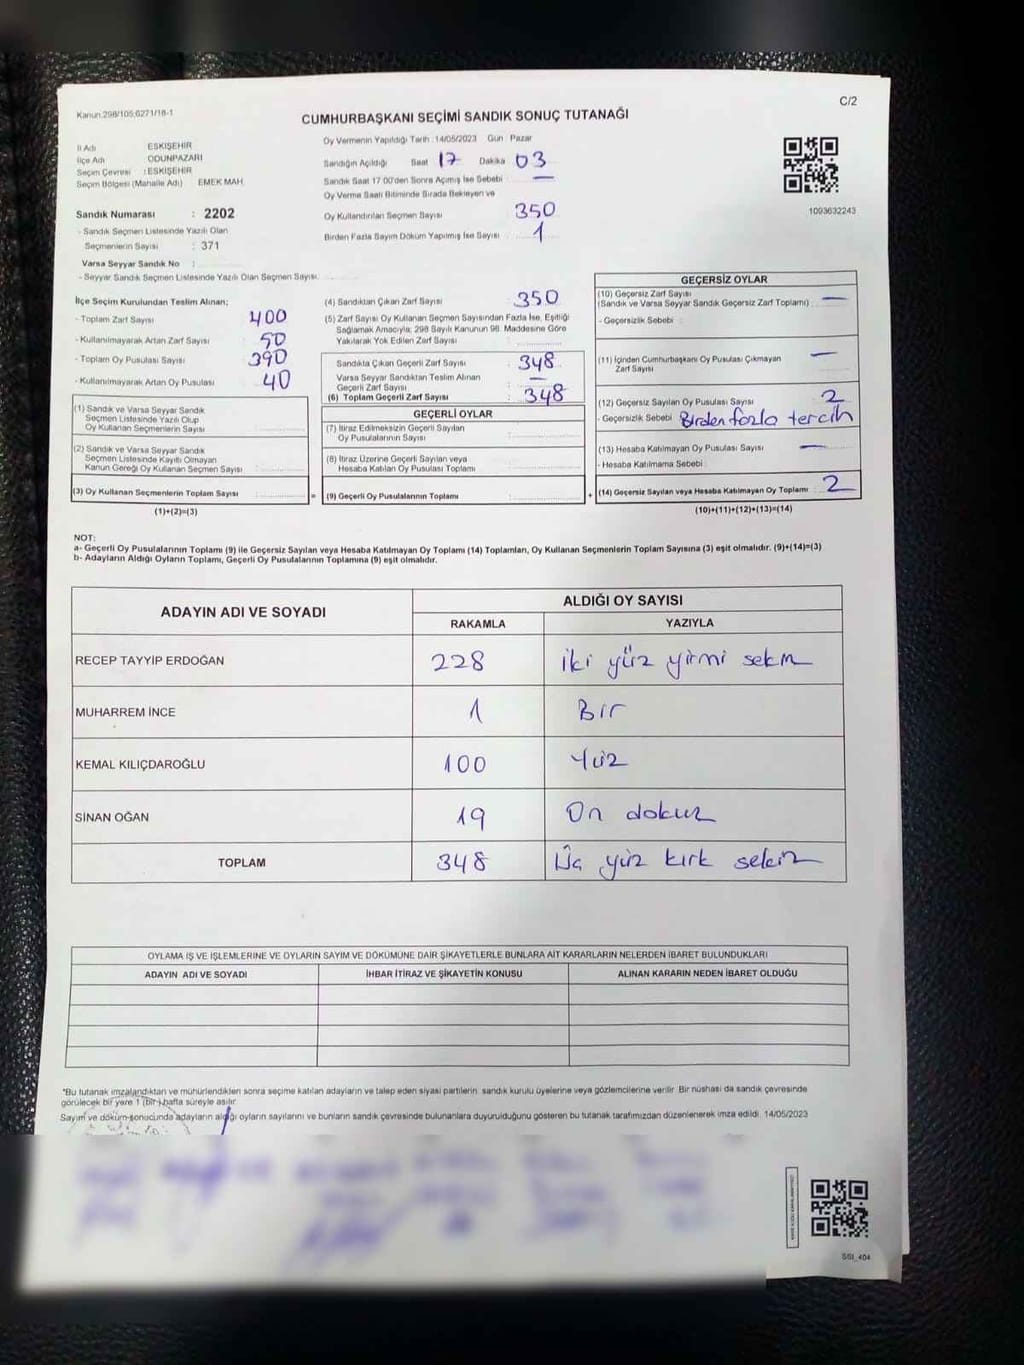 Kanun:298/105;6271/18-1
C/2
CUMHURBAŞKANI SEÇİMİ SANDIK SONUÇ TUTANAĞI
İl Adı ESKİŞEHİR
İlçe Adı ODUNPAZARI
Seçim Çevresi : ESKİŞEHİR
Seçim Bölgesi (Mahalle Adı) EMEK MAH.
Sandık Numarası : 2202
- Sandık Seçmen Listesinde Yazılı Olan
Seçmenlerin Sayısı : 371
Varsa Seyyar Sandık No :
- Seyyar Sandık Seçmen Listesinde Yazılı Olan Seçmen Sayısı:
Oy Vermenin Yapıldığı Tarih : 14/05/2023 Gün : Pazar
Sandığın Açıldığı Saat 17 Dakika 03
Sandık Saat 17:00'den Sonra Açımış İse Sebebi : —
Oy Verme Saati Bitiminde Sırada Bekleyen ve
Oy Kullandırılan Seçmen Sayısı 350
Birden Fazla Sayım Döküm Yapılmış İse Sayısı : 1
1093632243
İlçe Seçim Kurulundan Teslim Alınan;
- Toplam Zarf Sayısı 400
- Kullanılmayarak Artan Zarf Sayısı 50
- Toplam Oy Pusulası Sayısı 390
- Kullanılmayarak Artan Oy Pusulası 40
(1) Sandık ve Varsa Seyyar Sandık
Seçmen Listesinde Yazılı Olup
Oy Kullanan Seçmenlerin Sayısı :
(2) Sandık ve Varsa Seyyar Sandık
Seçmen Listesinde Kayıtlı Olmayan
Kanun Gereği Oy Kullanan Seçmen Sayısı :
(3) Oy Kullanan Seçmenlerin Toplam Sayısı : =
(1)+(2)=(3)
(4) Sandıktan Çıkan Zarf Sayısı 350
(5) Zarf Sayısı Oy Kullanan Seçmen Sayısından Fazla İse, Eşitliği
Sağlamak Amacıyla; 298 Sayılı Kanunun 98. Maddesine Göre
Yakılarak Yok Edilen Zarf Sayısı :
Sandıkta Çıkan Geçerli Zarf Sayısı 348
Varsa Seyyar Sandıktan Teslim Alınan
Geçerli Zarf Sayısı —
(6) Toplam Geçerli Zarf Sayısı : 348
GEÇERLİ OYLAR
(7) İtiraz Edilmeksizin Geçerli Sayılan
Oy Pusulalarının Sayısı :
(8) İtiraz Üzerine Geçerli Sayılan veya
Hesaba Katılan Oy Pusulası Toplamı :
(9) Geçerli Oy Pusulalarının Toplamı : +
GEÇERSİZ OYLAR
(10) Geçersiz Zarf Sayısı
(Sandık ve Varsa Seyyar Sandık Geçersiz Zarf Toplamı) : —
- Geçersizlik Sebebi :
(11) İçinden Cumhurbaşkanı Oy Pusulası Çıkmayan —
Zarf Sayısı
(12) Geçersiz Sayılan Oy Pusulası Sayısı 2
- Geçersizlik Sebebi : Birden fazla tercih
(13) Hesaba Katılmayan Oy Pusulası Sayısı : —
- Hesaba Katılmama Sebebi :
(14) Geçersiz Sayılan veya Hesaba Katılmayan Oy Toplamı : 2
(10)+(11)+(12)+(13)=(14)
NOT:
a- Geçerli Oy Pusulalarının Toplamı (9) ile Geçersiz Sayılan veya Hesaba Katılmayan Oy Toplamı (14) Toplamları, Oy Kullanan Seçmenlerin Toplam Sayısına (3) eşit olmalıdır. (9)+(14)=(3)
b- Adayların Aldığı Oyların Toplamı, Geçerli Oy Pusulalarının Toplamına (9) eşit olmalıdır.
ADAYIN ADI VE SOYADI
ALDIĞI OY SAYISI
RAKAMLA YAZIYLA
RECEP TAYYİP ERDOĞAN 228 iki yüz yirmi sekiz
MUHARREM İNCE 1 Bir
KEMAL KILIÇDAROĞLU 100 Yüz
SİNAN OĞAN 19 On dokuz
TOPLAM 348 Üç yüz kırk sekiz
OYLAMA İŞ VE İŞLEMLERİNE VE OYLARIN SAYIM VE DÖKÜMÜNE DAİR ŞİKAYETLERLE BUNLARA AİT KARARLARIN NELERDEN İBARET BULUNDUKLARI
ADAYIN ADI VE SOYADI İHBAR İTİRAZ VE ŞİKAYETİN KONUSU ALINAN KARARIN NEDEN İBARET OLDUĞU
*Bu tutanak imzalandıktan ve mühürlendikten sonra seçime katılan adayların ve talep eden siyasi partilerin sandık kurulu üyelerine veya gözlemcilerine verilir. Bir nüshası da sandık çevresinde
görülecek bir yere 1 (bir) hafta süreyle asılır.
Sayım ve döküm sonucunda adayların aldığı oyların sayılarını ve bunların sandık çevresinde bulunanlara duyurulduğunu gösteren bu tutanak tarafımızdan düzenlenerek imza edildi. 14/05/2023
SSI_404